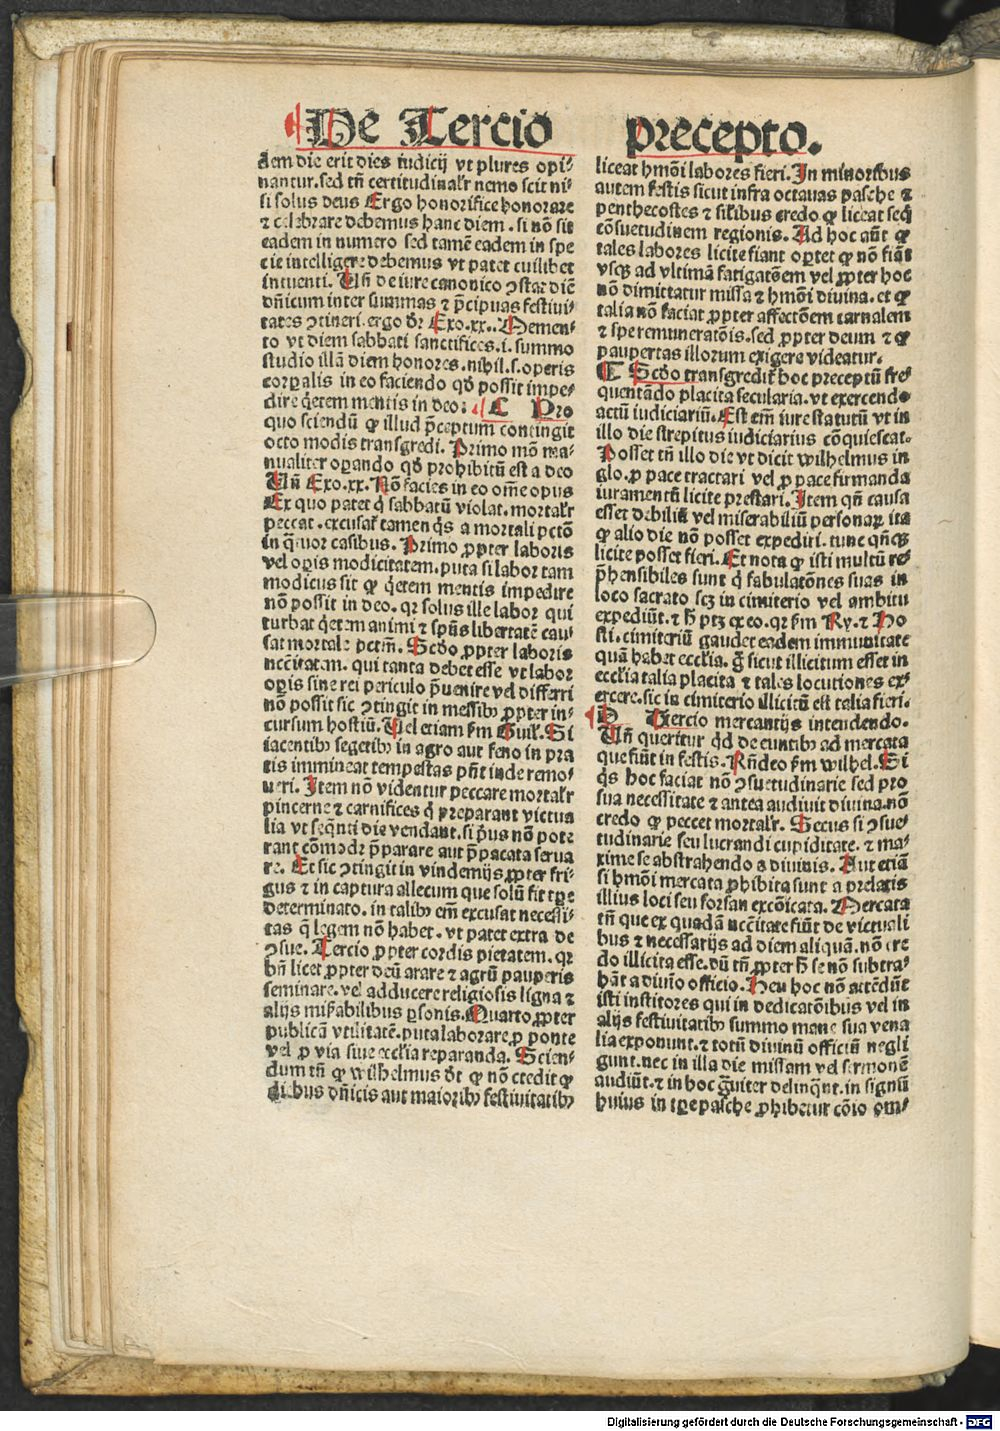 De Tercio precepto.
dem die erit dies iudicij vt plures opi⸗
nantur. sed tñ certitudinal'r nemo scit ni⸗
si solus deus Ergo honorifice honorare
⁊ celebrare debemus hanc diem. si nõ sit
eadem in numero sed tamẽ eadem in spe
cie intelligere debemus vt patet cuilibet
intuenti. Uñ de iure canonico ꝯstat diẽ
dñicum inter summas ⁊ p̃cipuas festiui⸗
tates ꝯtineri. ergo dr̃ Exo. xx.. Memen⸗
to vt diem sabbati sanctifices. i. summo
studio illã diem honores. nihil. s. operis
corꝑalis in eo faciendo qd' possit impe⸗
dire q̇etem mentis in deo: C Pro
quo sciendũ ꝙ illud p̃ceptum contingit
octo modis transgredi. Primo mõ ma⸗
nualiter oꝑando qd' prohibitũ est a deo
Uñ Exo. xx. Nõ facies in eo om̃e opus
Ex quo patet q̇ sabbatũ violat. mortal'r
peccat. excusat' tamen q̇s a mortali pctõ
in q̃tuor casibus. Primo ꝓpter laboris
vel oꝑis modicitatem. puta si labor tam
modicus sit ꝙ q̇etem mentis impedire
nõ possit in deo. qr solus ille labor qui
turbat q̇etem animi ⁊ sp̃us libertatẽ cau⸗
sat mortale pctm̃. Scd'o ꝓpter laboris
nccẽitatem. qui tanta debet esse vt labor
oꝑis sine rei periculo p̃uenire vel differri
nõ possit sic ꝯtingit in messibꝫ ꝓpter in⸗
cursum hostiũ. Uel etiam fm Guil'. Si
iacentibꝫ segetibꝫ in agro aut feno in pra
tis immineat tempestas pñt inde remo⸗
ueri. Item nõ videntur peccare mortal'r
pincerne ⁊ carnifices q̇ preparant victua
lia vt seq̃nti die vendant. si p̃us nõ pote
rant cõmode p̃parare aut p̃pacata serua
re. Et sic ꝯtingit in vindemijs ꝓpter fri⸗
gus ⁊ in captura allecum que solũ fit tꝑe
determinato. in talibꝫ em̃ excusat necessi⸗
tas q̃ legem nõ habet. vt patet extra de
ꝯsue. Tercio ꝓpter cordis pietatem. qr
bñ licet ꝓpter deũ arare ⁊ agrũ pauperis
seminare. vel adducere religiosis ligna ⁊
alijs mis'abilibus ꝑsonis. Quarto ꝓpter
publicã vtilitatẽ. puta laborare ꝓ ponte
vel ꝓ via siue eccl'ia reparanda. Scien⸗
dum tñ ꝙ wilhelmus dt' ꝙ nõ credit ꝙ
diebus dñicis aut maioribꝫ festiuitatibꝫ
liceat hmõi labores fieri. In minoribus
autem festis sicut infra octauas pasche ⁊
penthecostes ⁊ sil'ibus credo ꝙ liceat seq̇
cõsuetudinem regionis. Ad hoc aũt ꝙ
tales labores licite fiant oꝑtet ꝙ nõ fiãt
vsqꝫ ad vltimã fatigatõem vel ꝓpter hoc
nõ dimittatur missa ⁊ hmõi diuina. et ꝙ
talia nõ faciat ꝓpter affectõem carnalem
⁊ spe remuneratõis. sed ꝓpter deum ⁊ ꝙ
paupertas illorum exigere videatur.
C Scd'o transgredit' hoc preceptũ fre⸗
quentãdo placita secularia. vt exercendo
actũ iudiciariũ. Est em̃ iure statutũ vt in
illo die strepitus iudiciarius cõquiescat.
Posset tñ illo die vt dicit wilhelmus in
glo. ꝓ pace tractari vel ꝓ pace firmanda
iuramentũ licite prestari. Item qñ causa
esset debiliũ vel miserabiliũ personaꝝ ita
ꝙ alio die nõ posset expediri. tunc qñcꝫ
licite posset fieri. Et nota ꝙ isti multũ re⸗
p̃hensibiles sunt q̇ fabulatões suas in
loco sacrato scꝫ in cimiterio vel ambitu
expediũt. ⁊ h' ptꝫ ex eo. qr fm Ry. ⁊ Ho
sti. cimiteriũ gaudet eadem immunitate
quã habet eccl'ia. g̃ sicut illicitum esset in
eccl'ia talia placita ⁊ tales locutiones ex⸗
ercere. sic in cimiterio illicitũ est talia fieri.
D Tercio mercantijs intendendo.
Uñ queritur qd' de euntibꝫ ad mercata
que fiũt in festis. Rñdeo fm wilhel. Si
q̇s hoc faciat nõ ꝯsuetudinarie sed pro
sua necessitate ⁊ antea audiuit diuina. nõ
credo ꝙ peccet mortal'r. Secus si ꝯsue⸗
tudinarie seu lucrandi cupiditate. ⁊ ma⸗
xime se abstrahendo a diuinis. Aut etiã
si hmõi mercata ꝓhibita sunt a prelatis
illius loci seu forsan excõicata. Mercata
tñ que ex quadã nccẽitate fiũt de victuali
bus ⁊ necessarijs ad diem aliquã. nõ cre
do illicita esse. dũ tñ ꝓpter h' se nõ subtra⸗
hãt a diuino officio. Heu hoc nõ attẽdũt
isti institores qui in dedicatõibus vel in
alijs festiuitatibꝫ summo mane sua vena
lia exponunt. ⁊ totũ diuinũ officiũ negli
gunt. nec in illa die missam vel sermonẽ
audiũt. ⁊ in hoc g̃uiter delinq̃nt. in signũ
huius in tꝑe pasche ꝓhibetur cõio om⸗
Digitalisierung gefördert durch die Deutsche Forschungsgemeinschaft - DFG